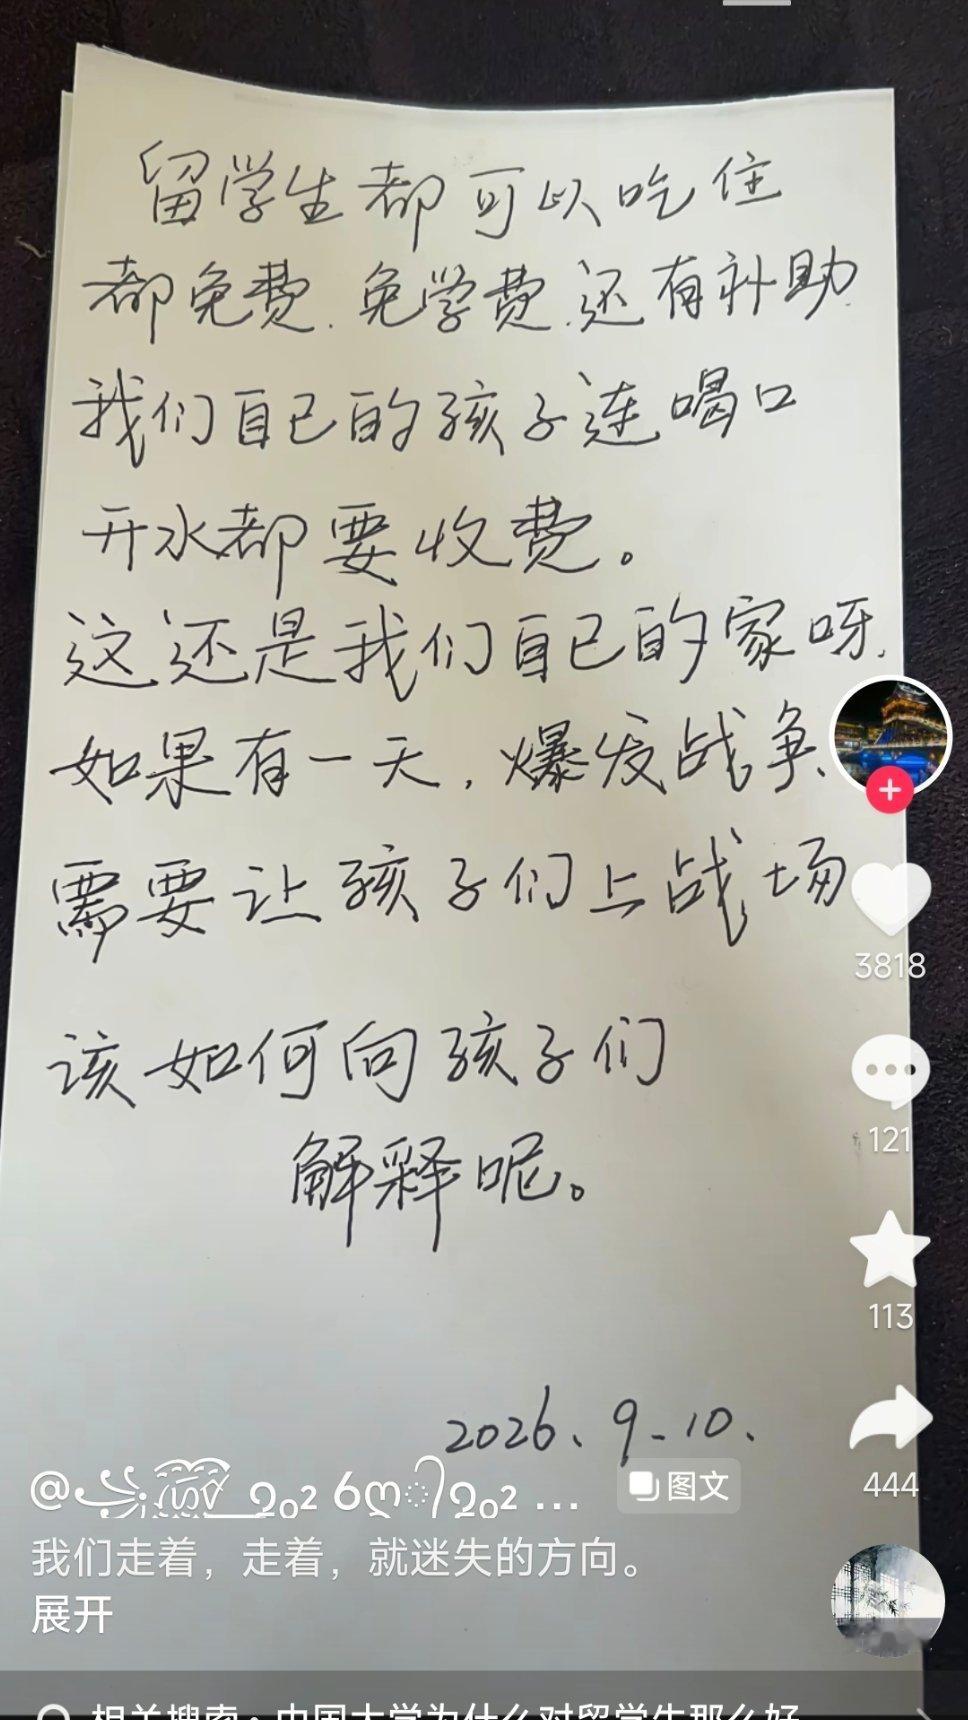 留学生都可以吃住
都免费.免学费.还有补助.
我们自己的孩子连喝口
开水都要收费。
这还是我们自己的家呀.
如果有一天,爆发战争、
需要让孩子们上战场
该如何向孩子们
解释呢。
2026、9-10、
3818
121
113
444
图文
我们走着，走着，就迷失的方向。
展开
相关搜索：中国大学为什么对留学生那么好